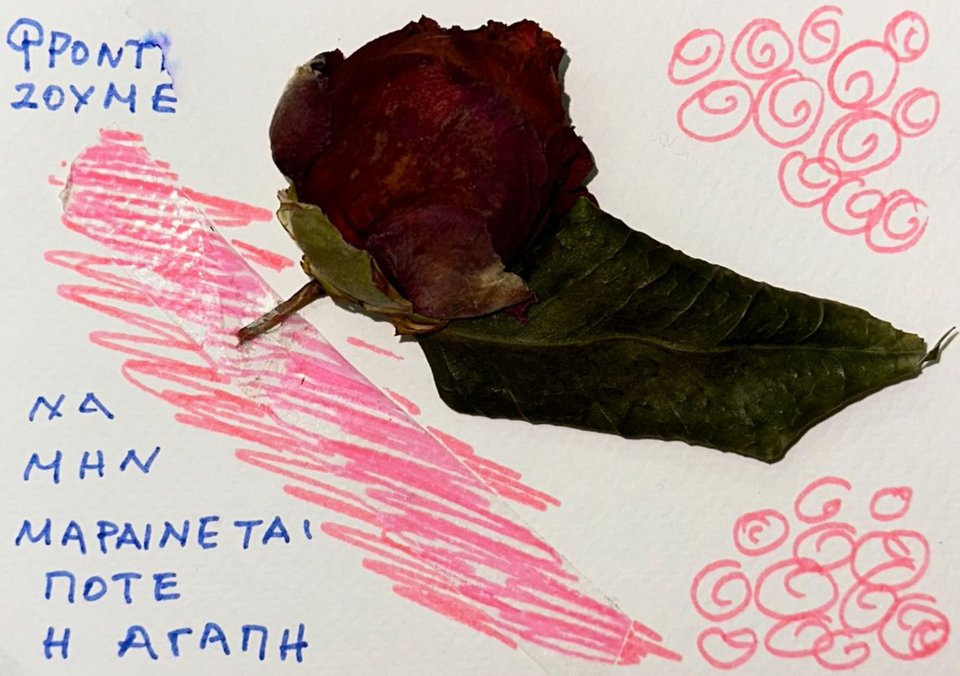 ΦΡΟΝΤΙ
ΖΟΥΜΕ
ΝΑ
ΜΗΝ
ΜΑΡΑΙΝΕΤΑΙ
ΠΟΤΕ
Η ΑΓΑΠΗ